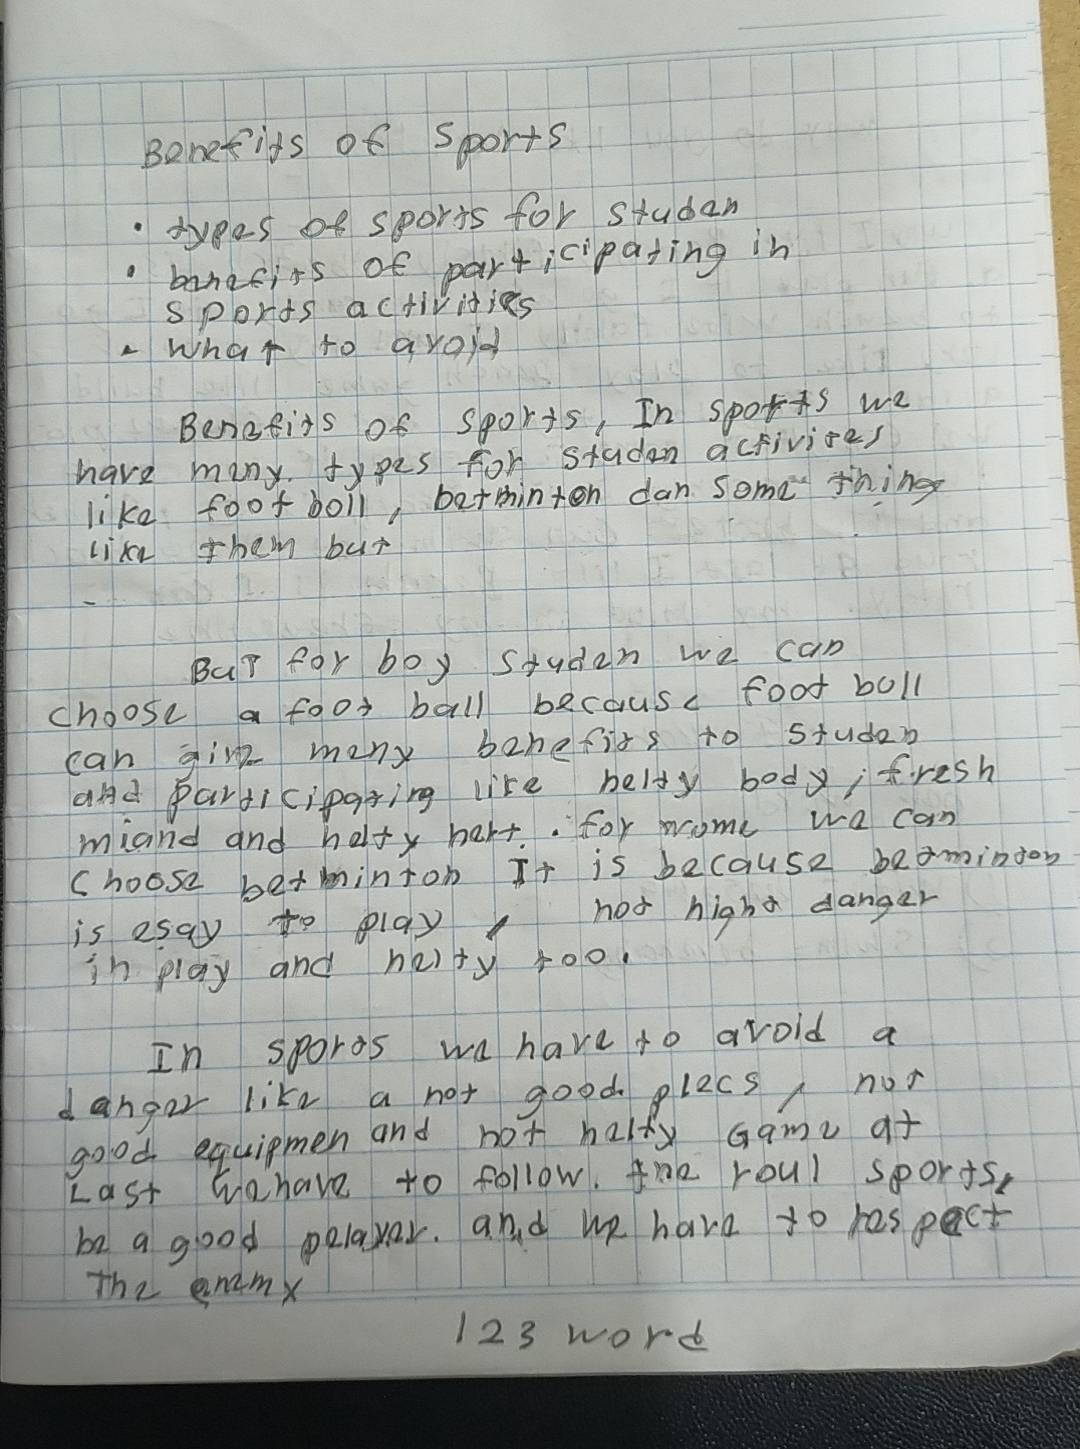 Benefits of Sports
• types of sports for studen
• benefits of participating in
sports activities
• what to avoid
Benefits of sports, In sports we
have meny. types for studen activites
like foot boll, betminton dan some thing
like them but
-
But for boy studen we can
choose a foot ball because foot boll
can give meny benefits to studen
and participating like helty body, fresh
miand and helty hert. for wome we can
choose betminton It is because betminton
is esay to play, not hight danger
in play and helty too.
In sports we have to avoid a
danger like a not good plecs, not
good equipmen and not helty Game at
Last we have to follow. the roul sports,
be a good pelayer. and we have to respect
The enemy
123 word